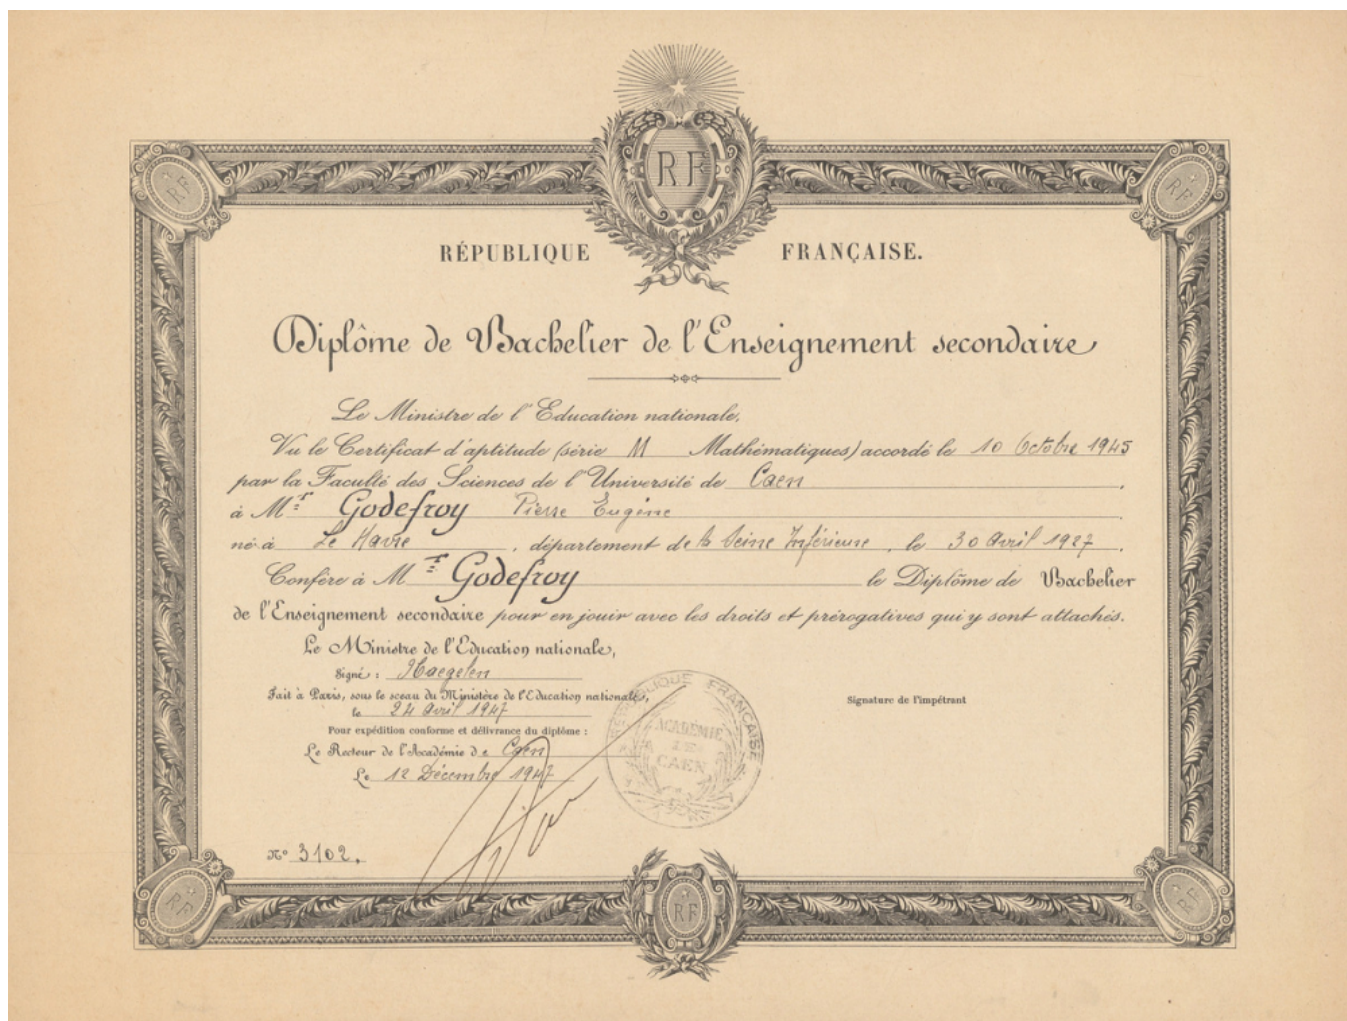 RF
RF
RF
RÉPUBLIQUE FRANÇAISE.
Diplôme de Bachelier de l'Enseignement secondaire
Le Ministre de l'Education nationale,
Vu le Certificat d'aptitude (série M Mathématiques) accordé le 10 Octobre 1945
par la Faculté des Sciences de l'Université de Caen.
à Mr Godefroy Pierre Eugène
né à Le Havre, département de la Seine Inférieure, le 30 Avril 1927.
Confère à Mr Godefroy le Diplôme de Bachelier
de l'Enseignement secondaire pour en jouir avec les droits et prérogatives qui y sont attachés.
Le Ministre de l'Education nationale,
Signé : Haegelen
Fait à Paris, sous le sceau du Ministère de l'Education nationale,
le 24 Avril 1947
Signature de l'impétrant
Pour expédition conforme et délivrance du diplôme :
Le Recteur de l'Académie de Caen
Le 12 Décembre 1947
RÉPUBLIQUE FRANÇAISE
ACADÉMIE
DE
CAEN
No 3102.
RF
RF
RF